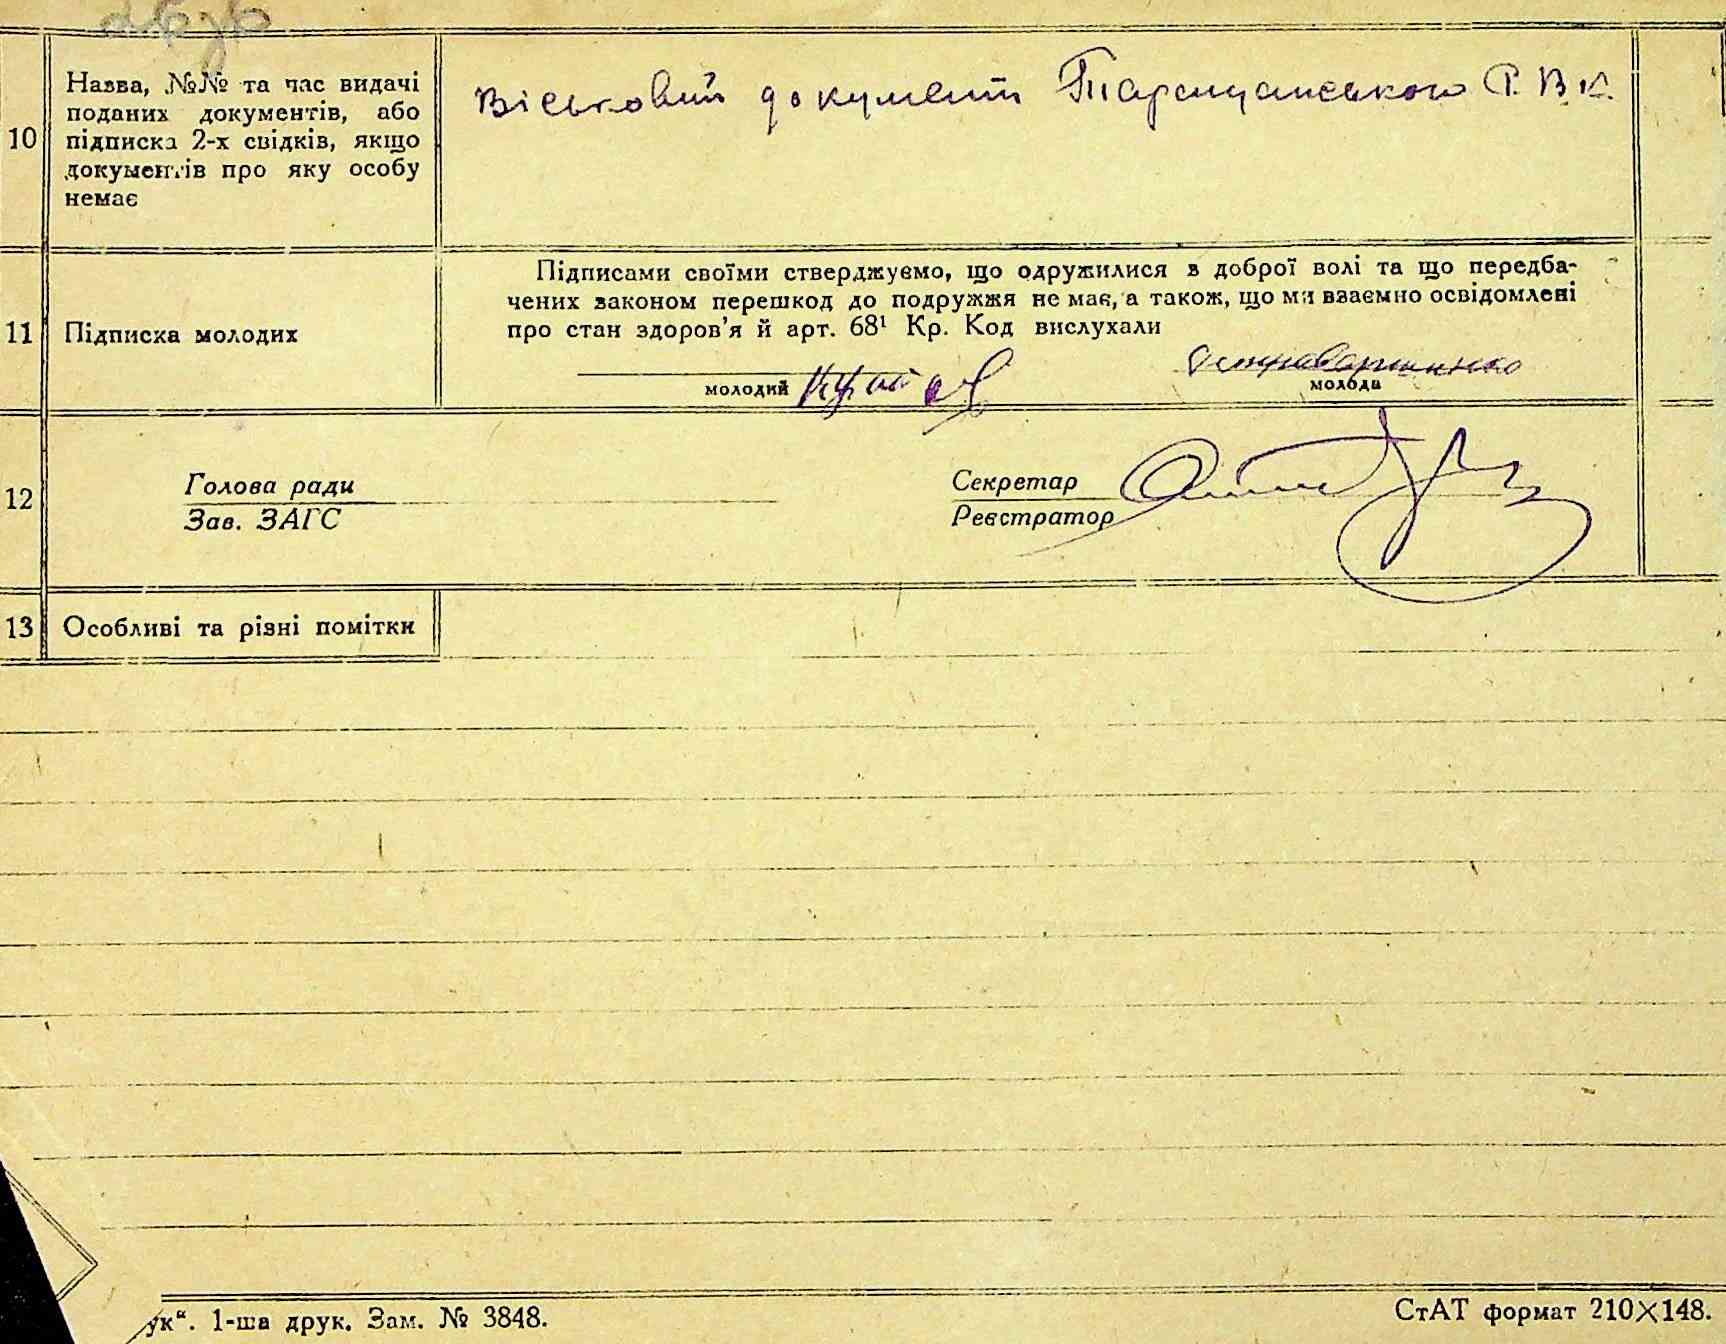 10 Назва, №№ та час видачі
поданих документів, або
підписка 2-х свідків, якщо
документів про яку особу
немає
Військовий документ Таращанського Р.В.К.
11 Підписка молодих
Підписами своїми стверджуємо, що одружилися з доброї волі та що передба-
чених законом перешкод до подружжя не має, а також, що ми взаємно освідомлені
про стан здоров'я й арт. 68¹ Кр. Код вислухали
молодий
молода
12 Голова ради
Зав. ЗАГС
Секретар
Реєстратор
13 Особливі та різні помітки
ук“. 1-ша друк. Зам. № 3848.
СтАТ формат 210×148.